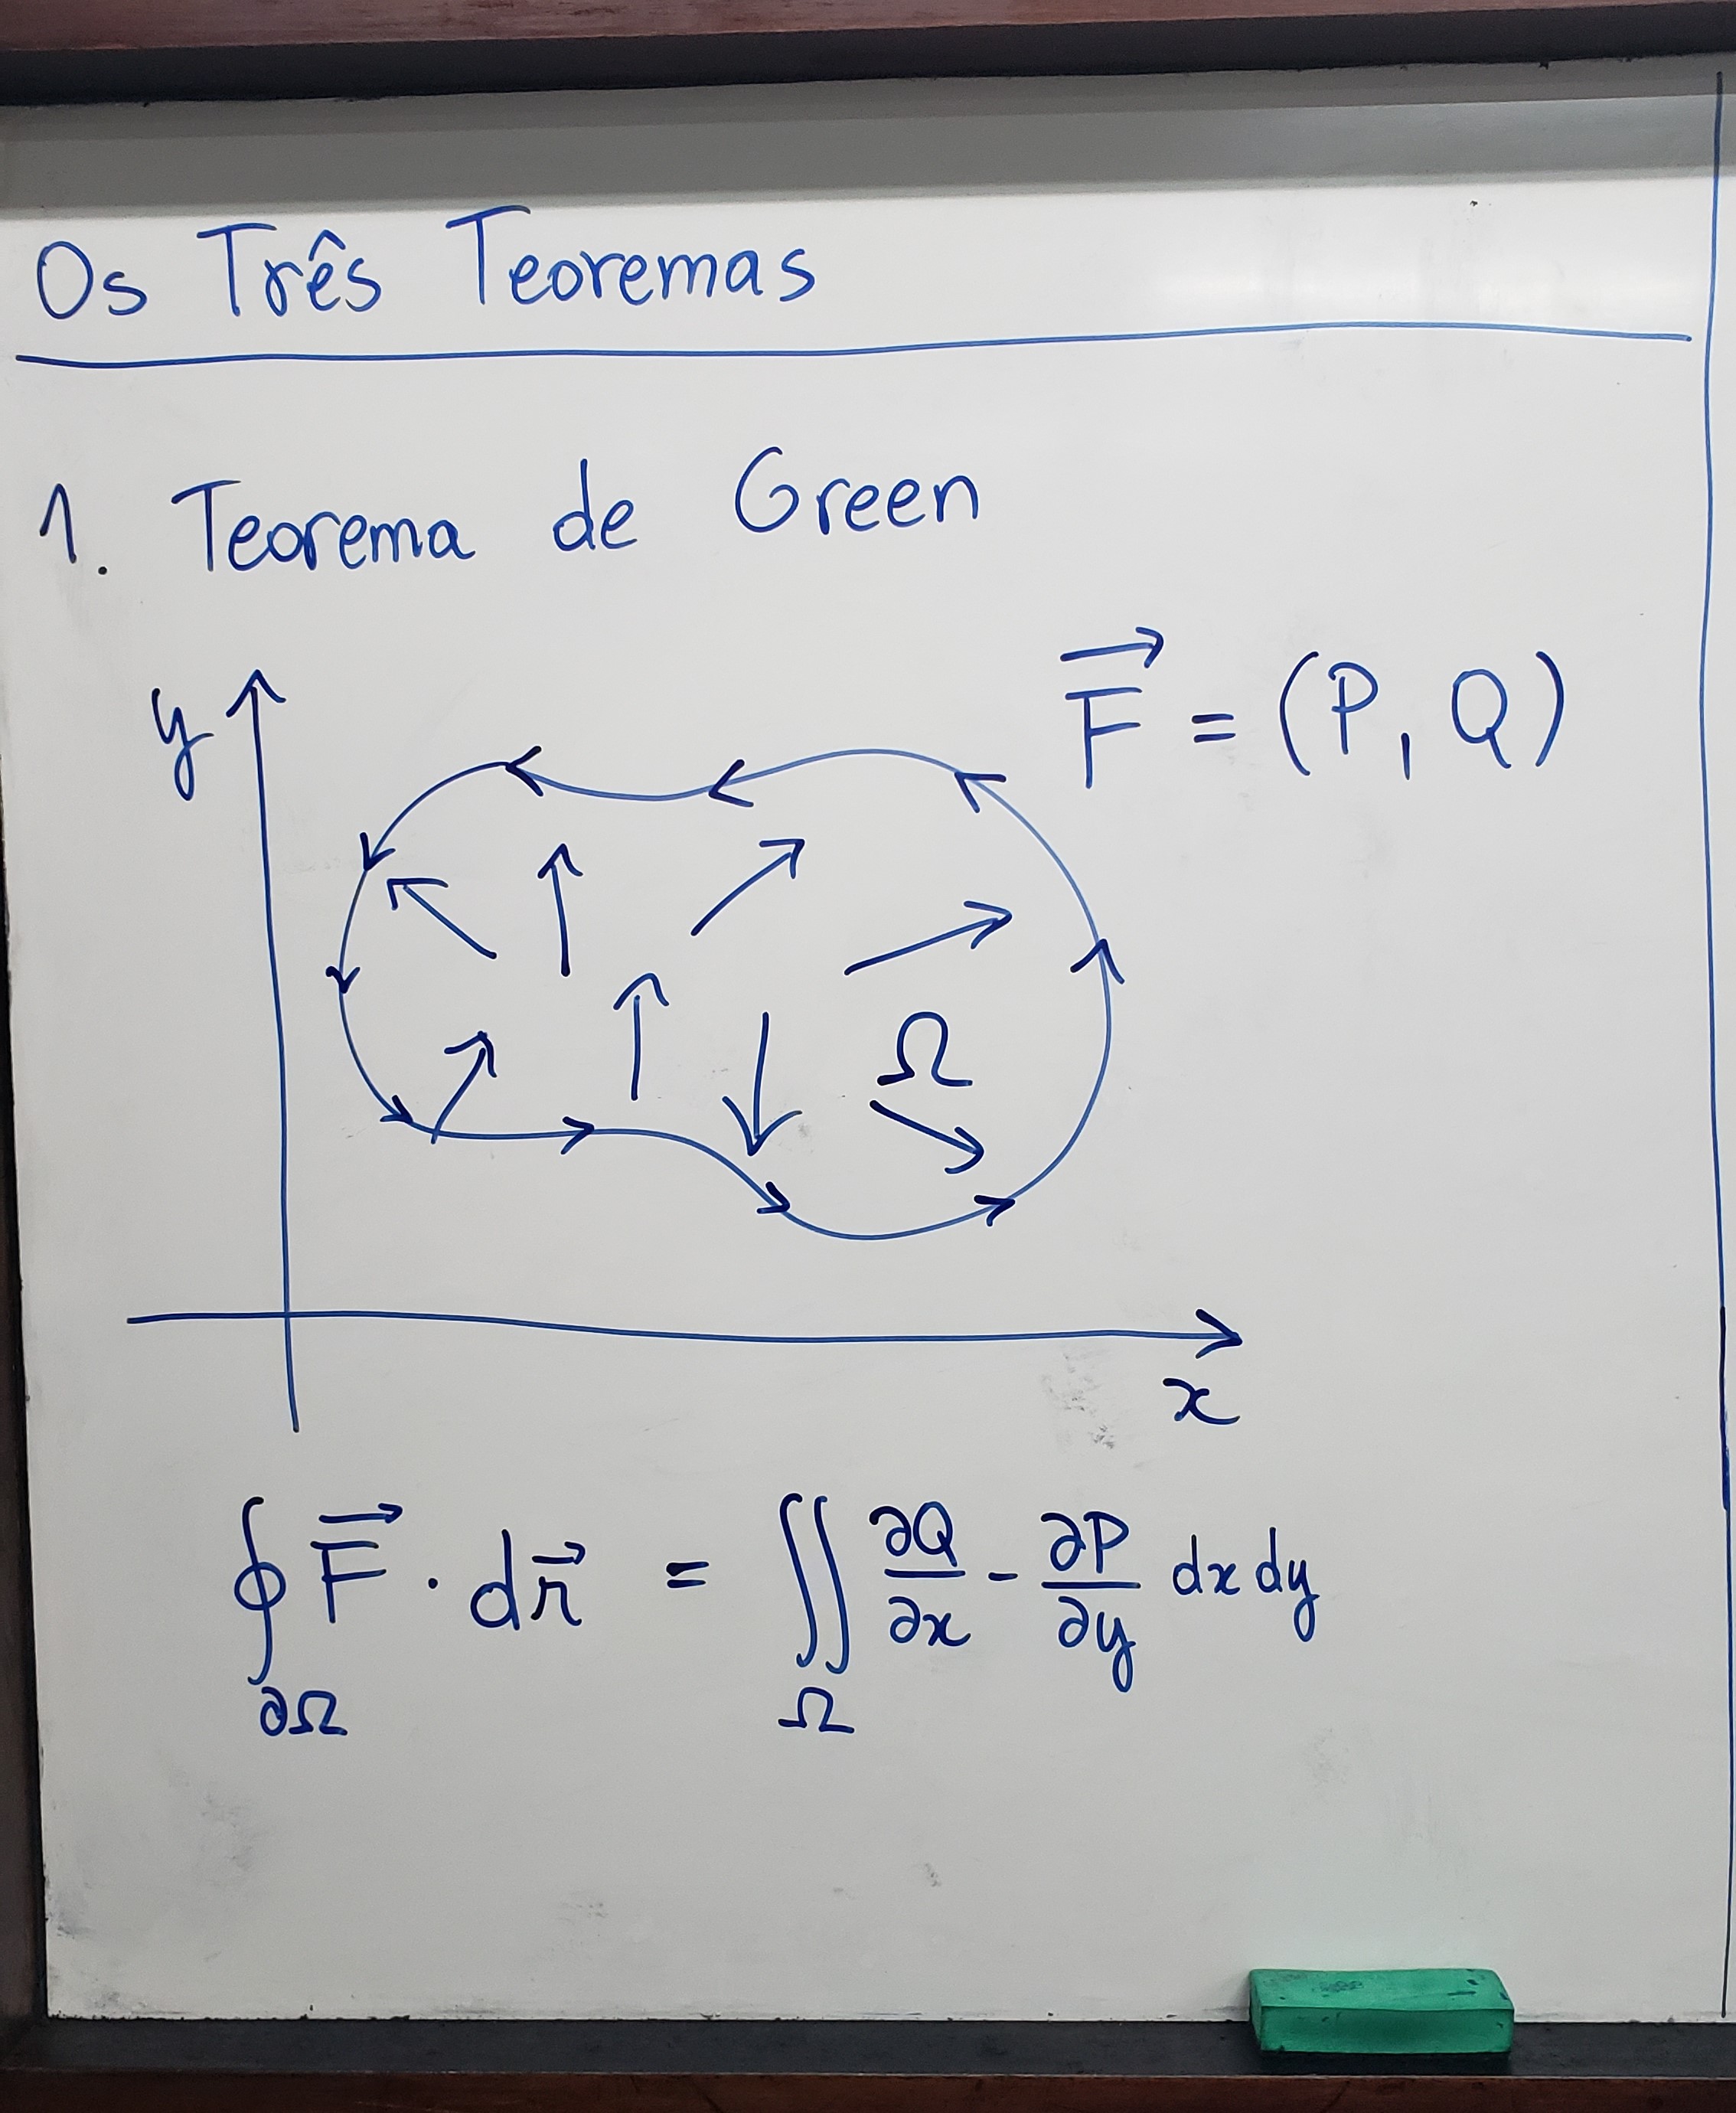 Os Três Teoremas
1. Teorema de Green
y
F⃗ = (P, Q)
Ω
x
∮_∂Ω F⃗ · dr⃗ = ∬_Ω ∂Q/∂x - ∂P/∂y dx dy